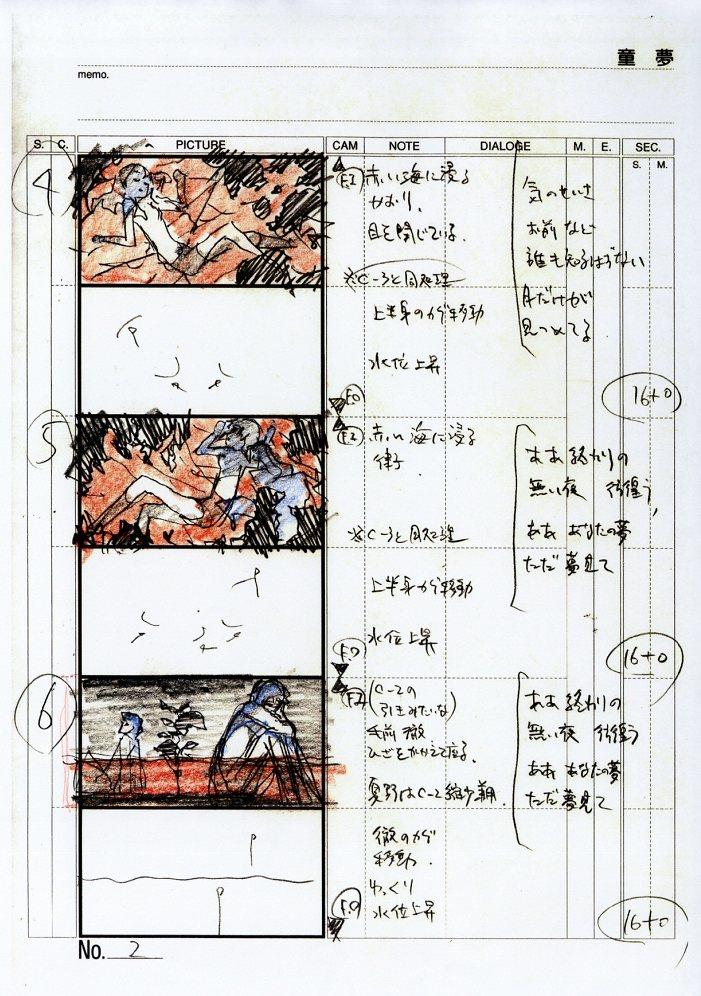 童夢
memo.
S. C. PICTURE CAM NOTE DIALOGE M. E. SEC.
S. M.
4
F.I
赤い海に浸る
かおり.
目を閉じている.
※C-3と同処理
上半身のカゲ移動
水位上昇
F.O
気のせいさ
お前など
誰も知るはずない
月だけが
見つめてる
16+0
5
F.I
赤い海に浸る
律子.
※C-3と同処理
上半身カゲ移動
水位上昇
F.O
ああ 終わりの
無い夜 彷徨う
ああ あなたの夢
ただ 夢見て
16+0
6
F.I
(C-2の
引きみたいな)
手前 徹
ひざをかかえて座る.
夏野はC-2
徹のカゲ
移動.
ゆっくり
水位上昇
F.O
ああ 終わりの
無い夜 彷徨う
ああ あなたの夢
ただ 夢見て
16+0
No. 2